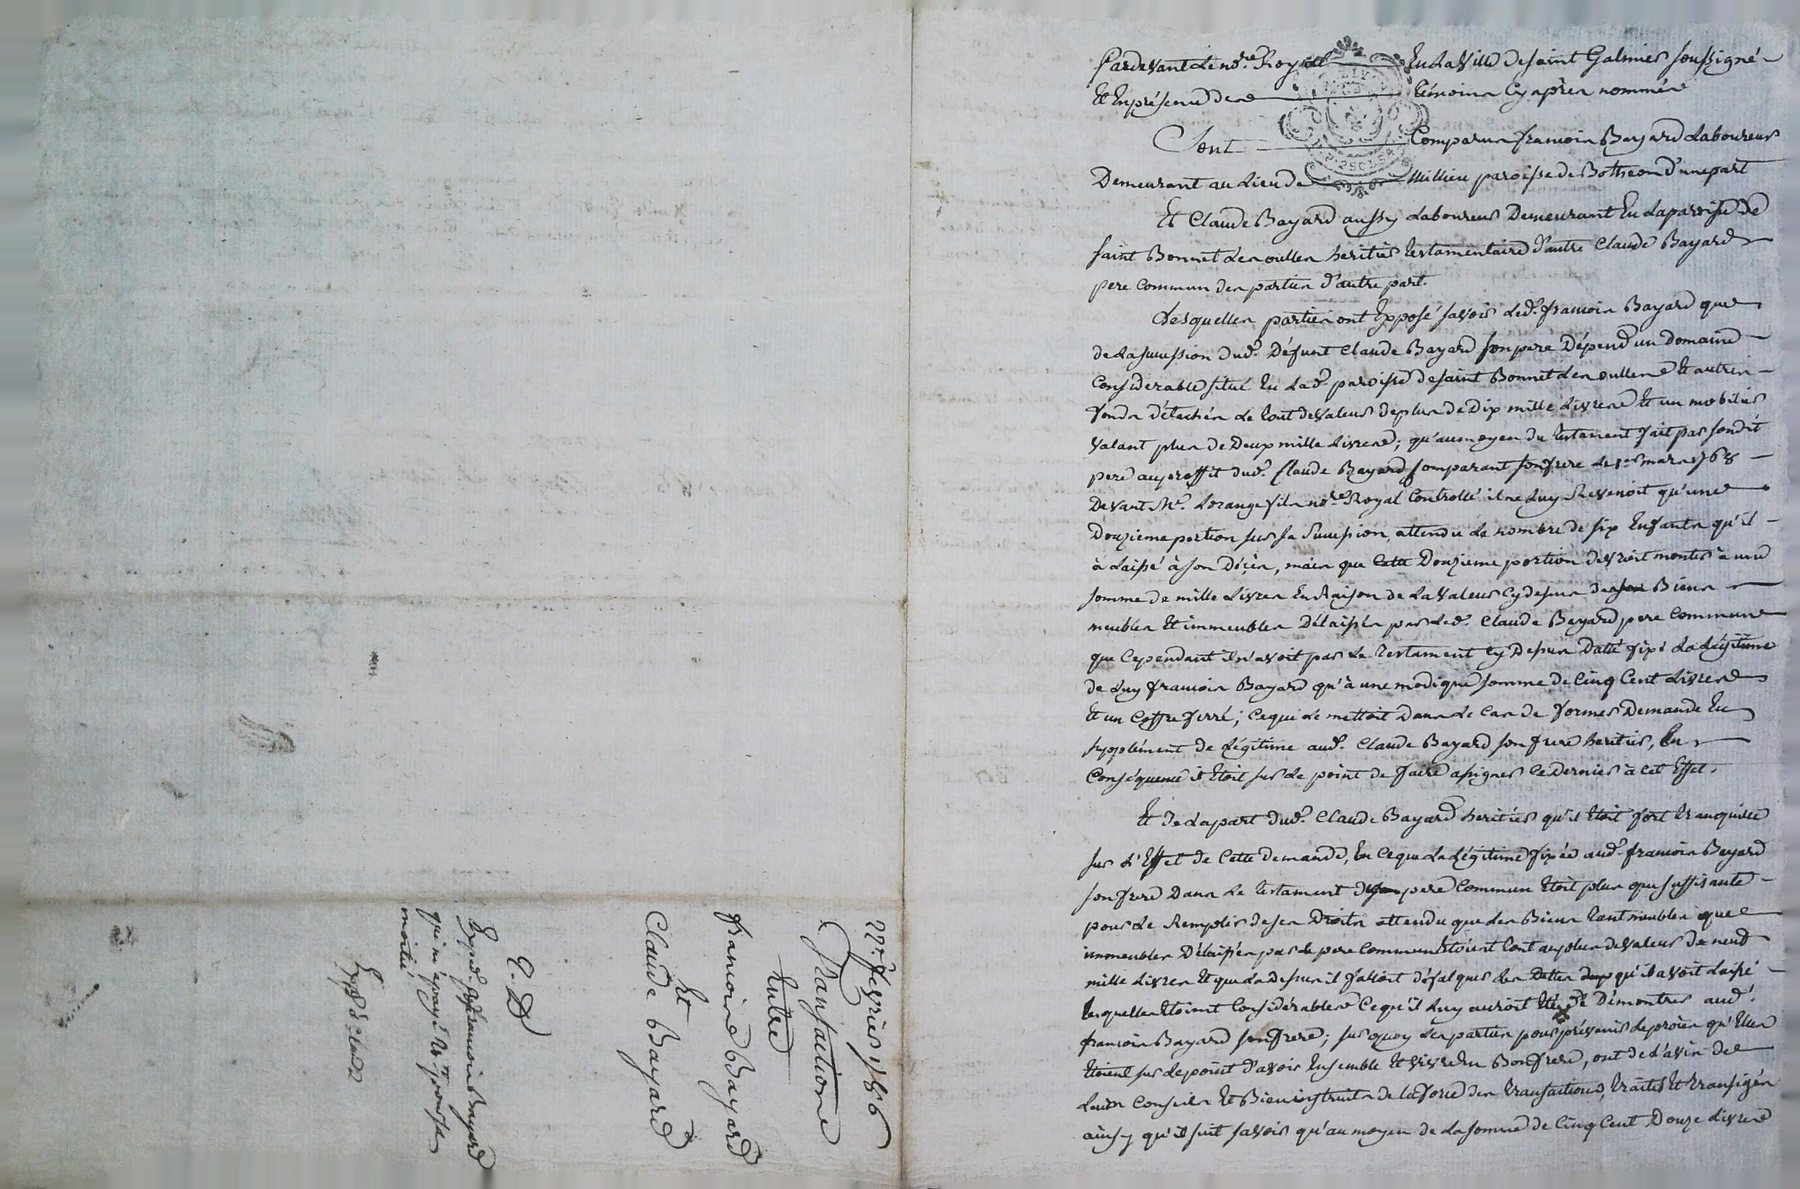 Pardevant le no.re Royal En la Ville de saint Galmier soussigné
Et En présence des témoins Cy après nommés
Sont Comparus françois Bayard Laboureur
Demeurant au Lieu de Millieu paroisse de Botheon d'une part
Et Claude Bayard aussy Laboureur Demeurant En la paroisse de
saint Bonnet Les oulles heritier testamentaire d'autre Claude Bayard
pere commun des parties d'autre part.
Lesquelles parties ont Exposé savoir Led. françois Bayard que
de la succession dud. Défunt Claude Bayard son pere Dépend un Domaine
Considerable situé En lad. paroisse de saint Bonnet Les oulles Et autres
fonds détachés Le tout de valeur de plus de Dix mille Livres Et un mobilier
valant plus de Deux mille Livres; qu'au moyen du testament fait par sondit
pere au proffit dud. Claude Bayard Comparant son frere Le mars 1768
Devant Me. Lorange fils no.re Royal Controllé il ne luy Revenoit qu'une
Douzieme portion sur sa Succession, attendu Le nombre de six Enfants qu'il
à Laissé à son Décès, mais que cette Douzieme portion devroit monter à une
somme de mille Livres En Raison de La valeur Cy dessus des Biens
meubles Et immeubles Délaissés par Led. Claude Bayard pere Commun
que Cependant il n'avoit par Le testament Cy Dessus Datté fixé La Légitime
de luy françois Bayard qu'à une modique somme de Cinq Cent Livres
Et un Coffre ferré; Ce qui Le mettoit Dans Le Cas de former Demande En
supplément de Légitime aud. Claude Bayard son frere heritier, En
Conséquence il Etoit sur Le point de faire assigner Ce Dernier à Cet Effet.
Et de La part dud. Claude Bayard heritier qu'il Etoit fort tranquille
sur L'Effet de Cette demande, En Ce que La Légitime fixée aud. françois Bayard
son frere Dans Le testament du pere Commun Etoit plus que suffisante
pour Le Remplir de ses Droits attendu que Les Biens tant meubles que
immeubles Délaissés par Le pere Commun Etoient tout au plus de valeur de neuf
mille Livres Et que La dessus il falloit défalquer Les Dettes qu'il avoit Laissé
Lesquelles Etoient Considerables Ce qu'il Luy auroit Eté Démontrer aud.
françois Bayard son frere; sur quoy Les parties pour prévenir Le procès qu'Elles
Etoient sur Le point d'avoir Ensemble Et vivre En Bon frere, ont de L'avis de
Leurs Conseils Et Bien instruits de La force des transactions, traités Et transigés
ainsy qu'il suit savoir qu'au moyen de La somme de Cinq Cent Douze Livres
22e fevrier 1786
Transaction
Entre
françois Bayard
Et
Claude Bayard
Exped. à françois Bayard
qui ma payé
moitié
Exp. à Claude